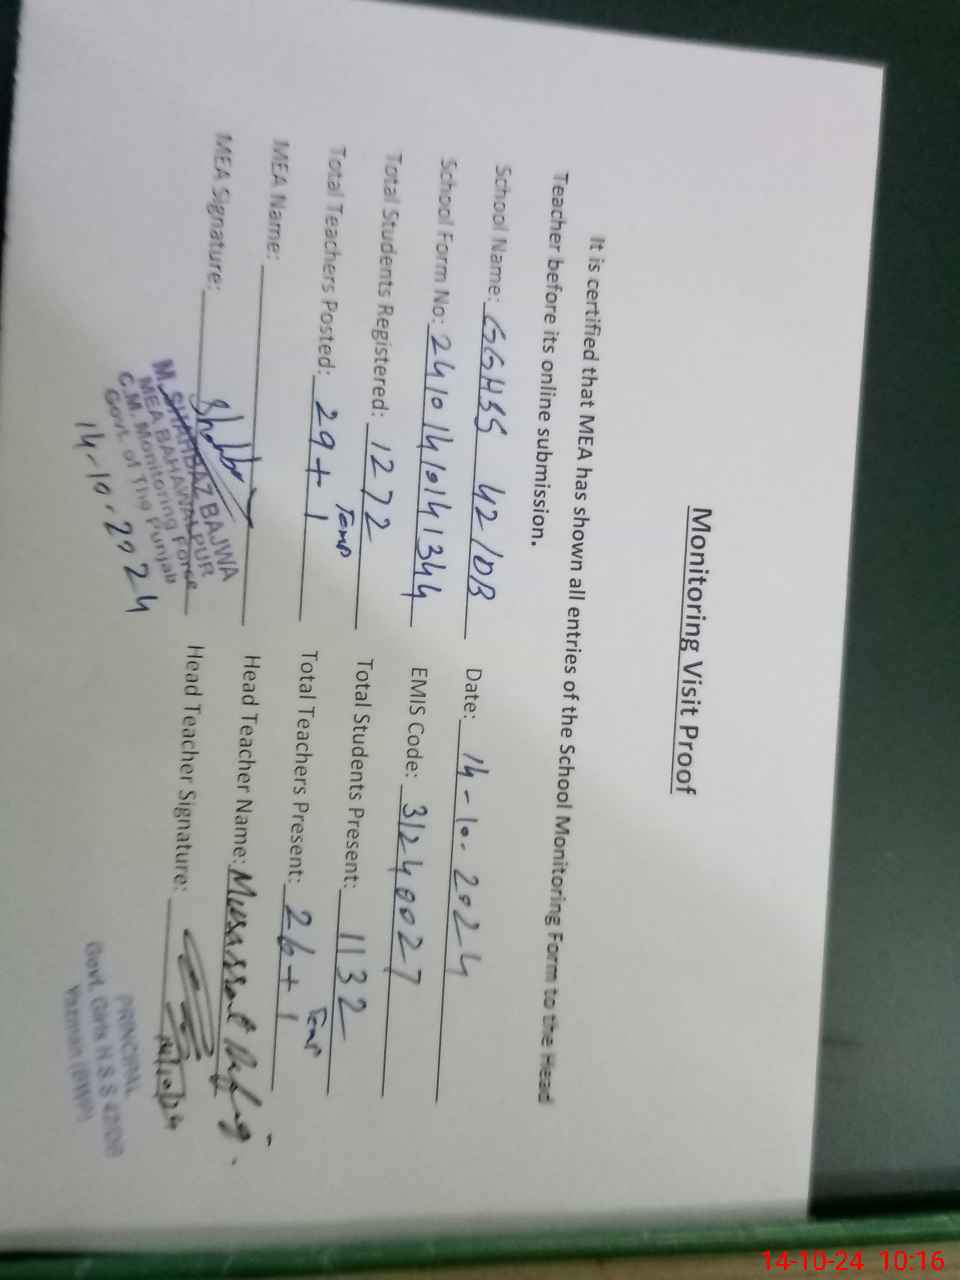 Monitoring Visit Proof
It is certified that MEA has shown all entries of the School Monitoring Form to the Head
Teacher before its online submission.
School Name: GGHSS 42/DB Date: 14-10-2024
School Form No: 24101410141344 EMIS Code: 31240027
Total Students Registered: 1272 Total Students Present: 1132
Total Teachers Posted: 29+1 Temp Total Teachers Present: 26+1 Temp
MEA Name: Head Teacher Name: Mussarat
MEA Signature: Head Teacher Signature: 14/10/24
M. SHAHBAZ BAJWA
MEA BAHAWALPUR
C.M. Monitoring Force
Govt. of The Punjab
14-10-2024
PRINCIPAL
Govt. Girls H.S.S 42/DB
Yazman (BWP)
14-10-24 10:16